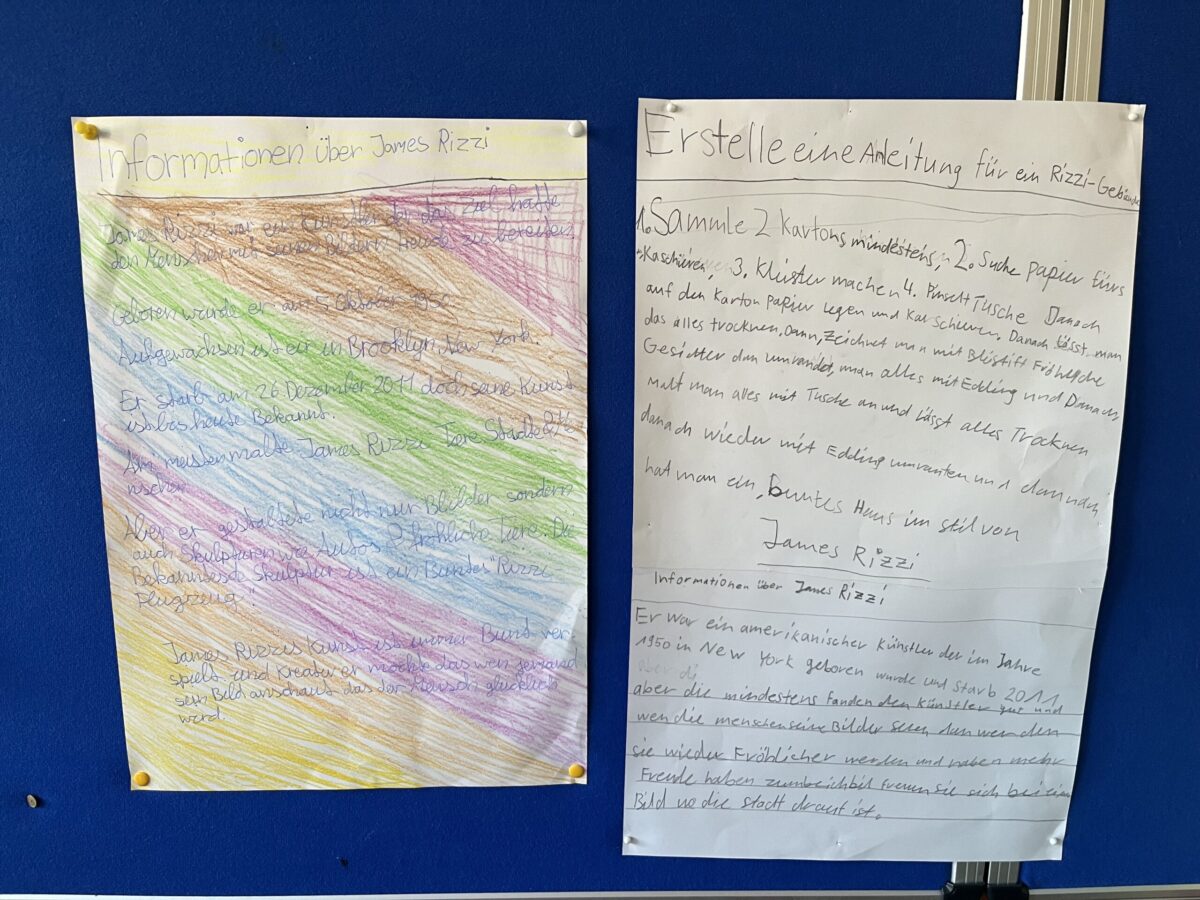 Informationen über James Rizzi
James Rizzi war ein Künstler der das Ziel hatte
den Menschen mit seinen Bildern Freude zu bereiten
Geboren wurde er am 5 Oktober 1950.
Aufgewachsen ist er in Brooklyn, New York.
Er starb am 26 Dezember 2011 doch seine Kunst
ist bis heute Bekannt.
Am meisten malte James Rizzi Tiere Städte
nschen
Aber er gestaltete nicht nur Bilder sondern
auch Skulpturen wie Autos & fröhliche Tiere. Die
Bekannteste Skulptur ist ein Buntes "Rizzi
Flugzeug".
James Rizzis Kunst ist immer Bunt ver-
spielt und Kreativ er möchte das wen jemand
sein Bild anschaut das der Mensch glücklich
wird.
Erstelle eine Anleitung für ein Rizzi-Gebäude
1. Sammle 2 Kartons mindestens, 2. Suche papier fürs
Kaschieren, 3. Kleister machen 4. Pinselt Tusche Danach
auf den Karton Papier legen und Karschieren. Danach lässt man
das alles trocknen, Dann, Zeichnet man mit Bleistift Fröhliche
Gesichter dan umrandet, man alles mit Edding und Danach,
malt man alles mit Tusche an und lässt alles Trocknen
danach wieder mit Edding umranten und dannach
hat man ein, buntes Haus im stil von
James Rizzi
Informationen über James Rizzi
Er war ein amerikanischer Künstler der im Jahre
1950 in New York geboren wurde und starb 2011
aber die mindestens fanden den Künstler gut und
wen die menschen seine Bilder seen dan werden
sie wieder Fröhlicher werden und haben mehr
Freude haben freuen sie sich bei einen
Bild wo die statt drauf ist.